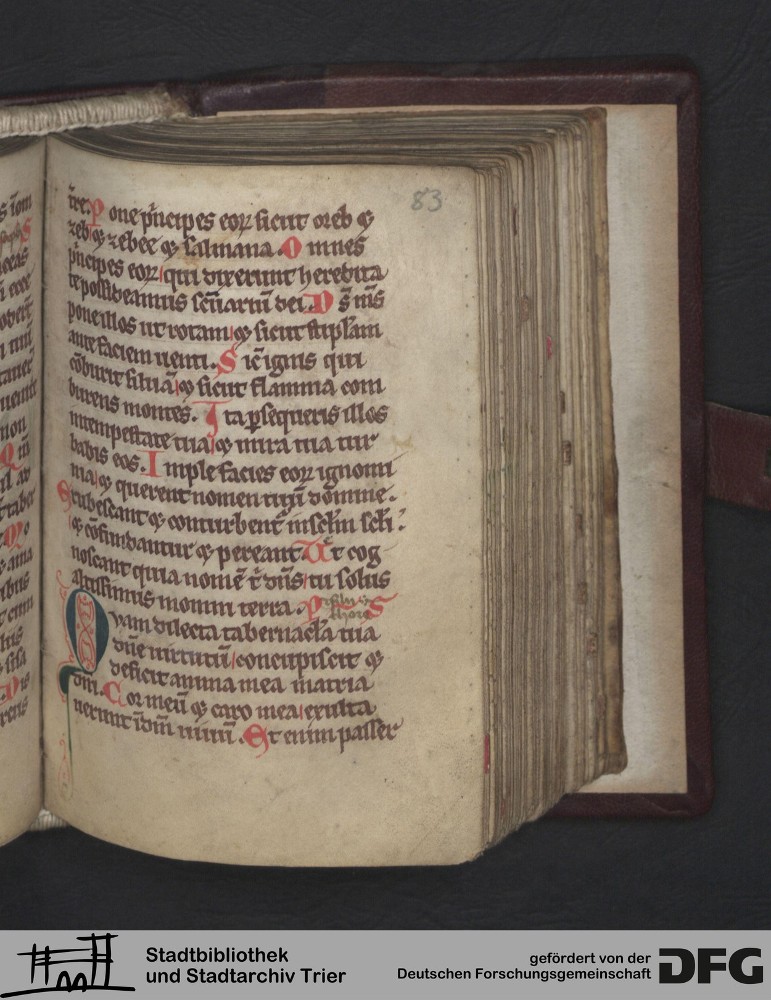 83
tre. Pone pͥncipes eoꝝ sicut oreb ⁊
zeb ⁊ zebee ⁊ salmana. Omnes
pͥncipes eoꝝ qui dixerunt heredita
te possideamus scūariū dei. Ds̄ ms̄
pone illos ut rotam ⁊ sicut stiplam
ante faciem uenti. Sic ignis qui
cōburit siluā ⁊ sicut flamma com
burens montes. Ita ꝑsequeris illos
in tempestate tua ⁊ in ira tua tur
babis eos. Imple facies eoꝝ ignomi
nia ⁊ querent nomen tuū domine.
Erubescant ⁊ conturbent᷑ in sclm̄ scli.
⁊ cōfundantur ⁊ pereant. Ut cog
noscant quia nomē t̄ dn̄s tu solus
altissimus in omni terra.
Quam dilecta tabernacla tua
dn̄e uirtutū concupiscit ⁊
deficit anima mea in atria
dni. Cor meū ⁊ caro mea exulta
uerunt in dm̄ uiuū. Et enim passer
Stadtbibliothek
und Stadtarchiv Trier
gefördert von der
Deutschen Forschungsgemeinschaft
DFG